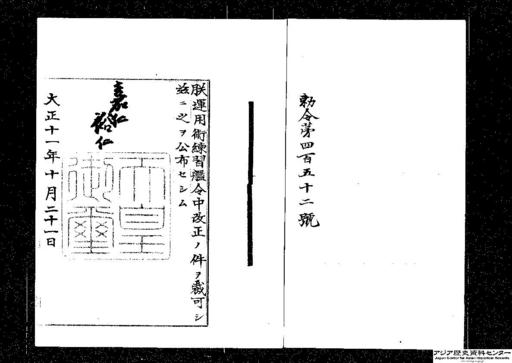 勅令第四百五十二號
朕運用術練習艦令中改正ノ件ヲ裁可シ
茲ニ之ヲ公布セシム
嘉仁
裕仁
天皇
御璽
大正十一年十月二十一日
アジア歴史資料センター
Japan Center for Asian Historical Records